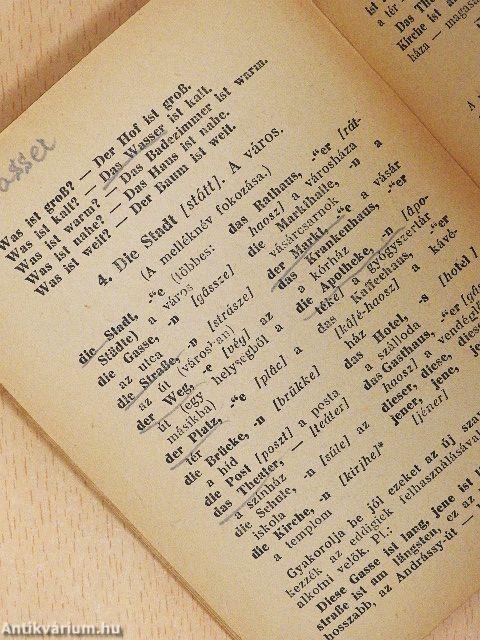 asser
Was ist groß? — Der Hof ist groß.
Was ist kalt? — Das Wasser ist kalt.
Was ist warm? — Das Badezimmer ist warm.
Was ist nahe? — Das Haus ist nahe.
Was ist weit? — Der Baum ist weit.
4. Die Stadt [státt]. A város.
(A melléknév fokozása.)
die Stadt, -"e (többes:
Städte) a város
die Gasse, -n [gássze]
az utca
die Straße, -n [strásze]
az út (városi-an)
der Weg, -e [vég] az
út (egy helységből a
másikba)
der Platz, -"e [plác] a
tér
die Brücke, -n [brükke]
a híd
die Post [poszt] a posta
das Theater, — [teáter]
a színház
die Schule, -n [súle] az
iskola
die Kirche, -n [kirhe]*
a templom
das Rathaus, -"er [rát-
haosz] a városháza
die Markthalle, -n a
vásárcsarnok
der Markt, -"e a vásár
das Krankenhaus, -"er
a kórház
die Apotheke, -n [ápo-
téke] a gyógyszertár
das Kaffeehaus, -"er
[káfé-haosz] a kávé-
ház
das Hotel, -s [hotel]
a szálloda
das Gasthaus, -"er [gá
haosz] a vendégl
dieser, diese, diese
jener, jene, je
[jéner]
Gyakorolja be jól ezeket az új szav
kezzék az eddigiek felhasználásával
alkotni velök. Pl.:
Diese Gasse ist lang, jene ist l
straße ist am längsten, ez az
hosszabb, az Andrássy-út —
ist
a tér
Das The
Kirche ist a
háza — magasa
Antikvárium.hu